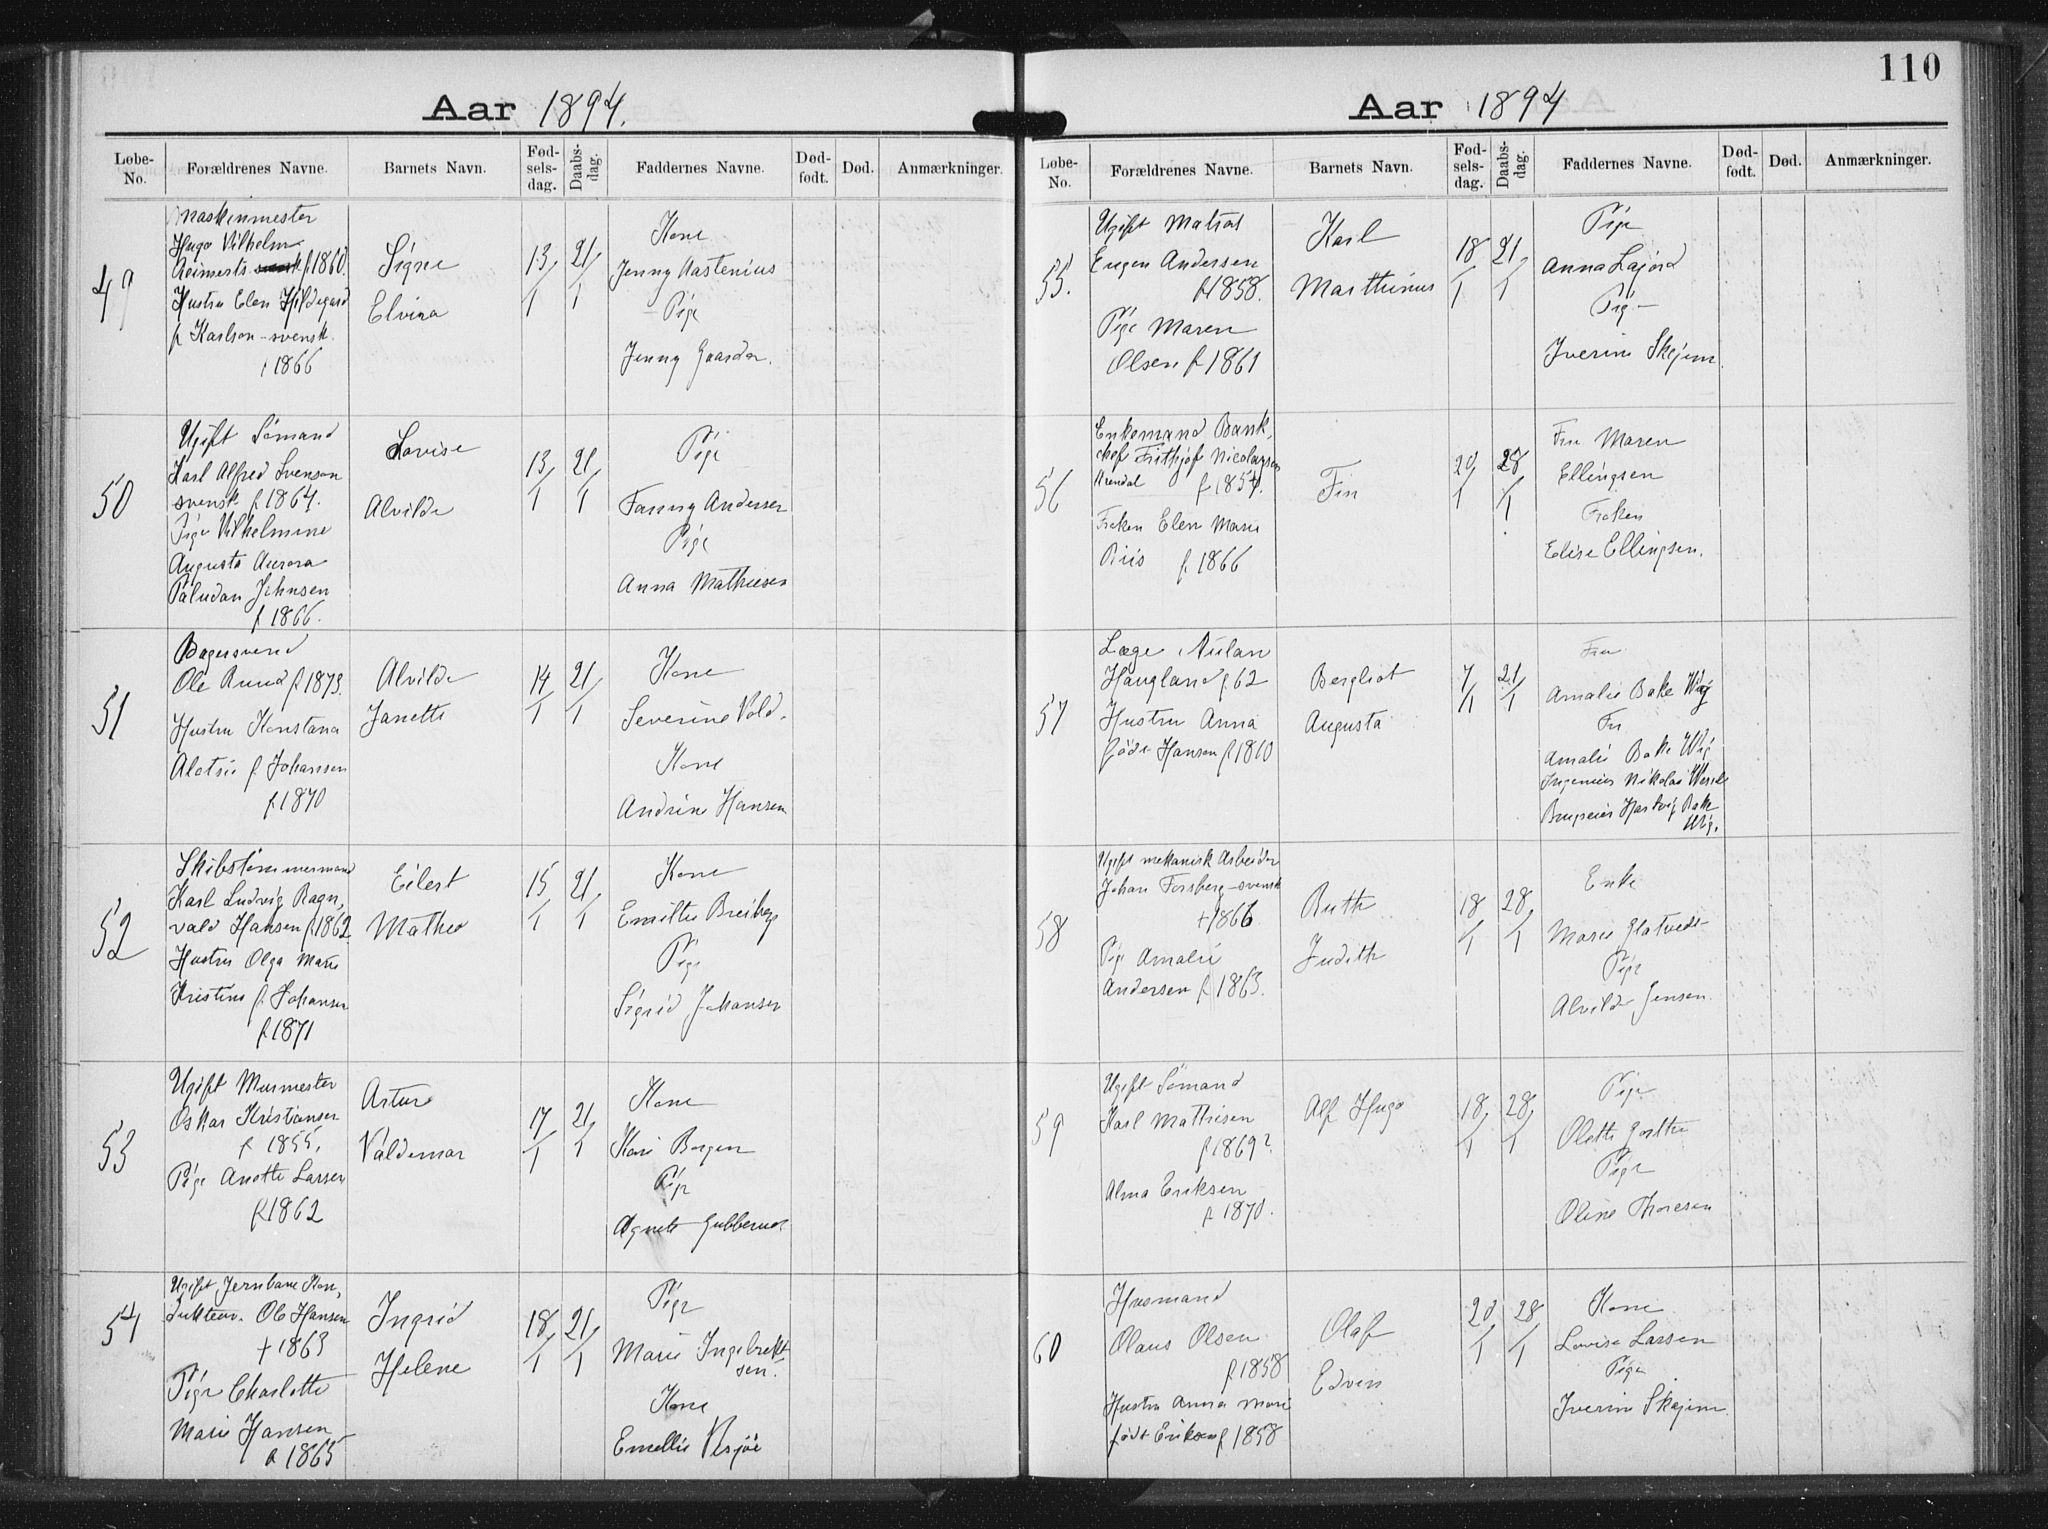 110
Aar 1894.
Løbe-No. Forældrenes Navne. Barnets Navn. Fød-selsdag. Daabsdag. Faddernes Navne. Død-født. Død. Anmærkninger.
49
Maskinmester
Hugo Vilhelm
Reimerts f 1860.
Hustru Elen Hildegard
f Karlson - svensk.
1866
Signe
Elvira
13/1
21/1
Kone
Jenny Aastenius
Pige
Jenny Gaarder.
50
Ugift Sømand
Karl Alfred Svenson
svensk f 1864.
Pige Vilhelmine
Augusta Aurora
Paludan Johnsen
f 1866.
Lovise
Alvilde
13/1
21/1
Pige
Fanny Andersen
Pige
Anna Mathiesen
51
Bagersvend
Ole Ruud f 1873.
Hustru Konstana
Alotsie f Johansen
f 1870
Alvilde
Janette
14/1
21/1
Kone
Severine Vold.
Kone
Andrine Hansen
52
Skibstømmermand
Karl Ludvig Ragn,
vald Hansen f 1862
Hustru Olga Marie
Kristine f. Johansen
f 1871
Eilert
Matheo
15/1
21/1
Kone
Emilie Breiberg
Pige
Sigrid Johansen
53
Ugift Murmester
Oskar Kristiansen
f 1855.
Pige Anette Larsen
f 1862
Artur
Valdemar
17/1
21/1
Kone
Kari Borgen
Pige
Agnete Gubberud
54
Ugift Jernbane Kon,
dukteur. Ole Hansen
f 1863
Pige Charlotte
Marie Hansen
f 1865
Ingrid
Helene
18/1
21/1
Pige
Marie Ingebrekt
sen.
Kone
Emellie Vesjøe
Aar 1894
Løbe-No. Forældrenes Navne. Barnets Navn. Fød-selsdag. Daabsdag. Faddernes Navne. Død-født. Død. Anmærkninger.
55.
Ugift Matros
Eugen Andersen
f 1858.
Pige Maren
Olsen f 1861
Karl
Marthinius
18/1
21/1
Pige
Anna Lajord
Pige
Iverine Skejem.
56
Enkemand Bank,
chef Frithjof Nicolaysen
Arendal f 1854.
Frøken Elen Marie
Riis f. 1866
Fin
20/1
28/1
Fru Maren
Ellingsen
Frøken
Elise Ellingsen.
57
Læge Aulan
Haugland f. 62
Hustru Anna
født Hansen f 1860
Bergliot
Augusta
7/1
21/1
Fru
Amalie Bake Wiig
Fru
Amalie Bake Wiig
Ingeniør Nikolai Wessel
Brugseier Hartvig Bake
Wiig.
58
Ugift mekanisk Arbeider
Johan Forsberg - svensk
f 1866
Pige Amalie
Andersen f 1863.
Ruth
Judith
18/1
28/1
Enke
Marie Glatvedt
Pige
Alvilde Jensen.
59
Ugift Sømand
Karl Mathisen
f 1869?
Alma Eriksen
f 1870.
Alf Hugo
18/1
28/1
Pige
Olette Gorthe
Pige
Oline Thoresen
60
Husmand
Olaus Olsen
f 1858
Hustru Anna Marie
født Eriksen f 1858
Olaf
Edvin
20/1
28/1
Kone
Lovise Larsen
Pige
Iverine Skejem